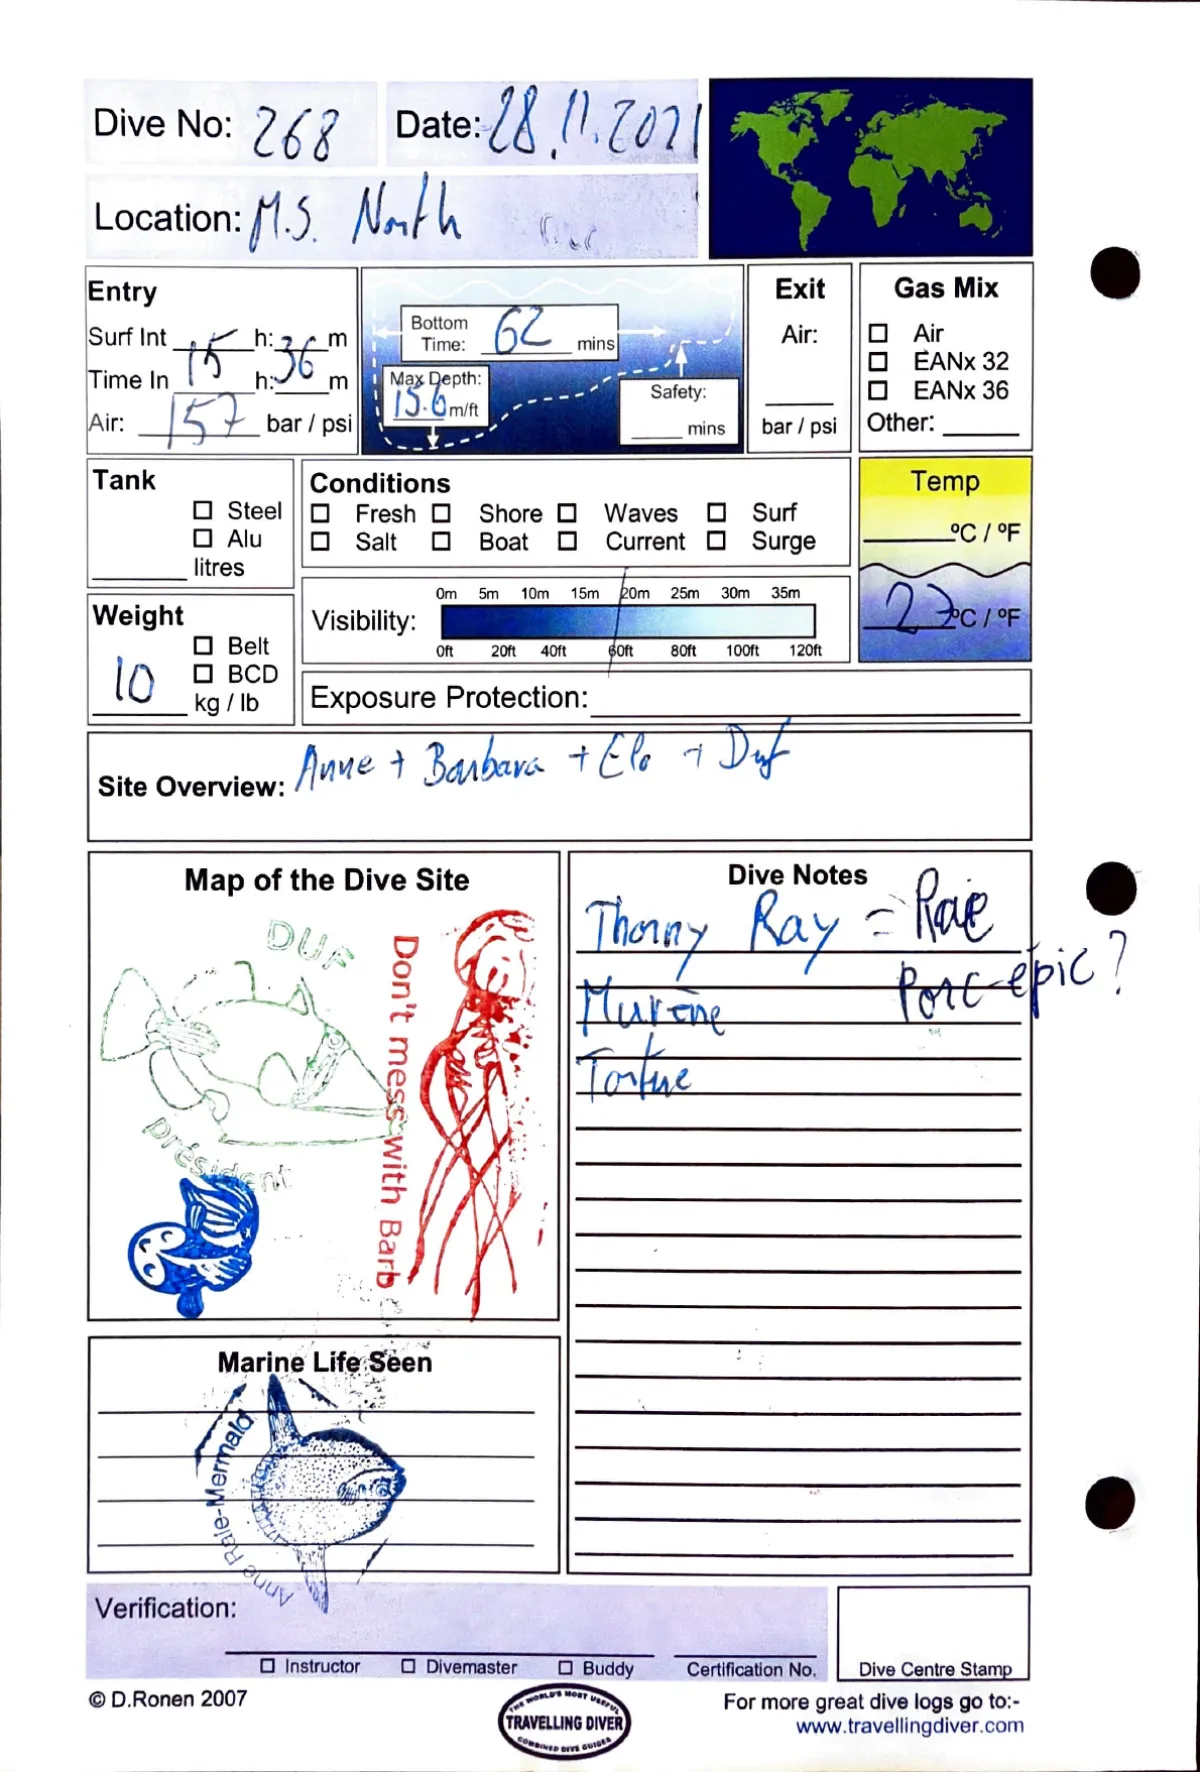 Dive No: 268
Date: 28.11.2021
Location: M.S. North
Entry
Surf Int ___ h: ___ m
Time In 15 h: 36 m
Air: 157 bar / psi
Bottom Time: 62 mins
Max Depth: 15.6 m/ft
Safety: ___ mins
Exit
Air:
bar / psi
Gas Mix
Air
EANx 32
EANx 36
Other:
Tank
Steel
Alu
litres
Conditions
Fresh Shore Waves Surf
Salt Boat Current Surge
Temp
ºC / ºF
27 ºC / ºF
Weight
Belt
BCD
10 kg / lb
0m 5m 10m 15m 20m 25m 30m 35m
Visibility:
0ft 20ft 40ft 60ft 80ft 100ft 120ft
Exposure Protection:
Site Overview: Anne + Barbara + Elo + Duf
Map of the Dive Site
DUF
président
Don't mess with Barb
Dive Notes
Thorny Ray = Raie
Porc-épic ?
Murène
Tortue
Marine Life Seen
Anne Raie-Mermaid
Verification:
Instructor Divemaster Buddy Certification No.
Dive Centre Stamp
© D.Ronen 2007
THE WORLD'S MOST USEFUL
TRAVELLING DIVER
COMBINED DIVE GUIDES
For more great dive logs go to:-
www.travellingdiver.com